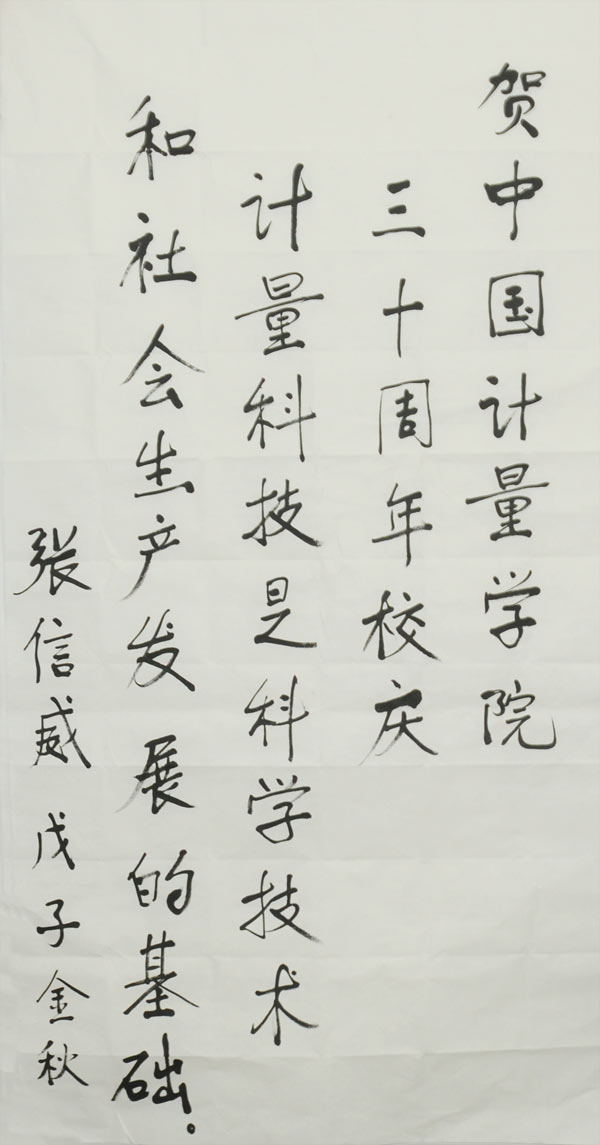 贺中国计量学院
三十周年校庆
计量科技是科学技术
和社会生产发展的基础。
张信威 戊子金秋